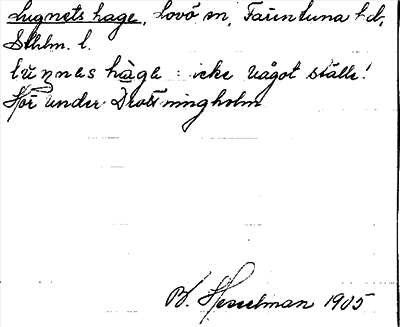 Lugnets hage, Lovö sn, Färentuna hd,
Sthlm. l.
lu̇ŋnes hàge : icke något ställe!
Hör under Drottningholm
B. Hesselman 1905